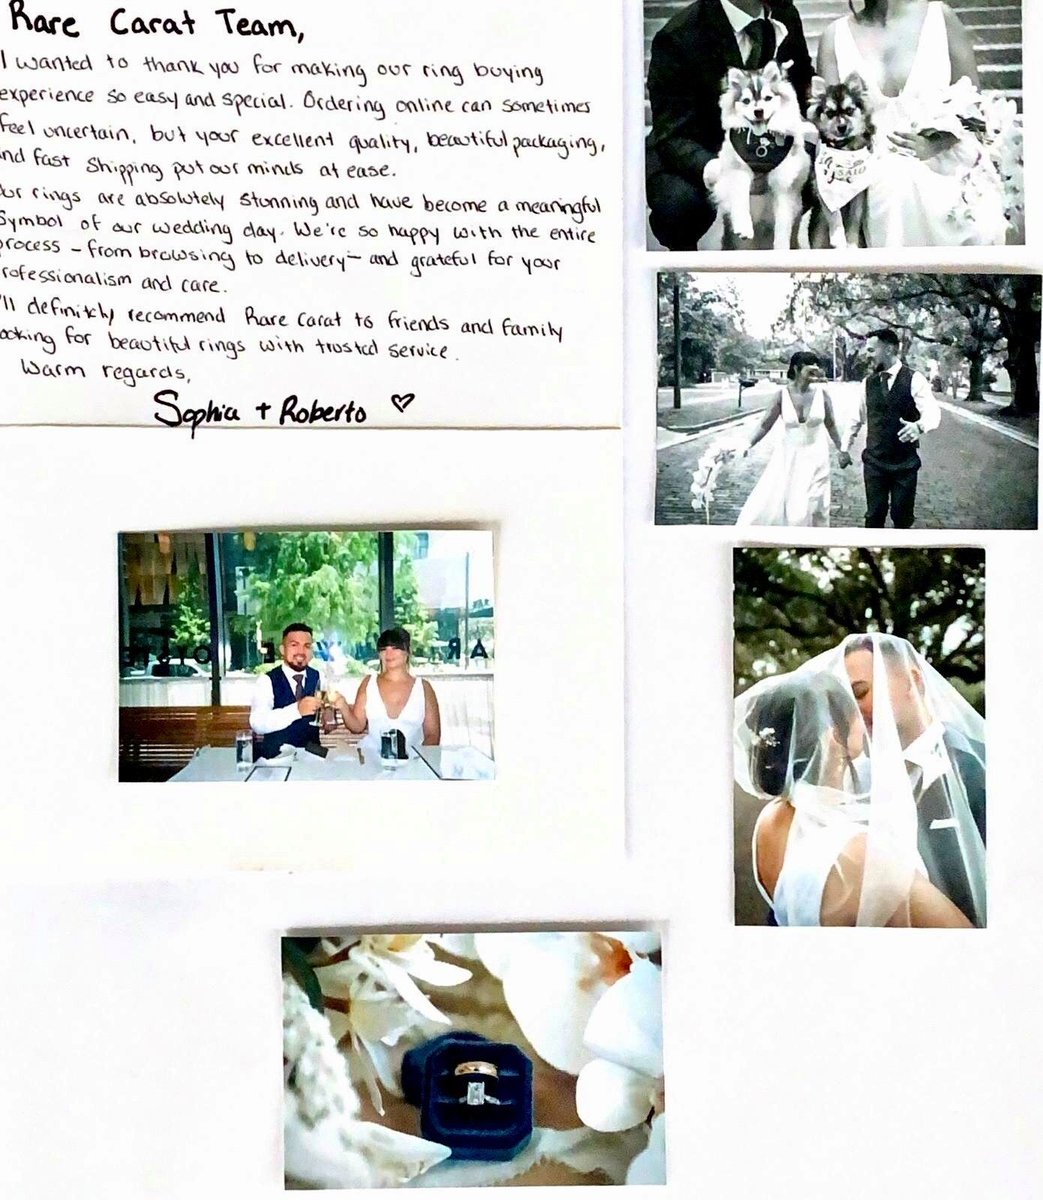 Rare Carat Team,
I wanted to thank you for making our ring buying
experience so easy and special. Ordering online can sometimes
feel uncertain, but your excellent quality, beautiful packaging,
and fast shipping put our minds at ease.
Our rings are absolutely stunning and have become a meaningful
symbol of our wedding day. We're so happy with the entire
process - from browsing to delivery - and grateful for your
rofessionalism and care.
'll definitely recommend Rare Carat to friends and family
ooking for beautiful rings with trusted service.
Warm regards,
Sophia + Roberto